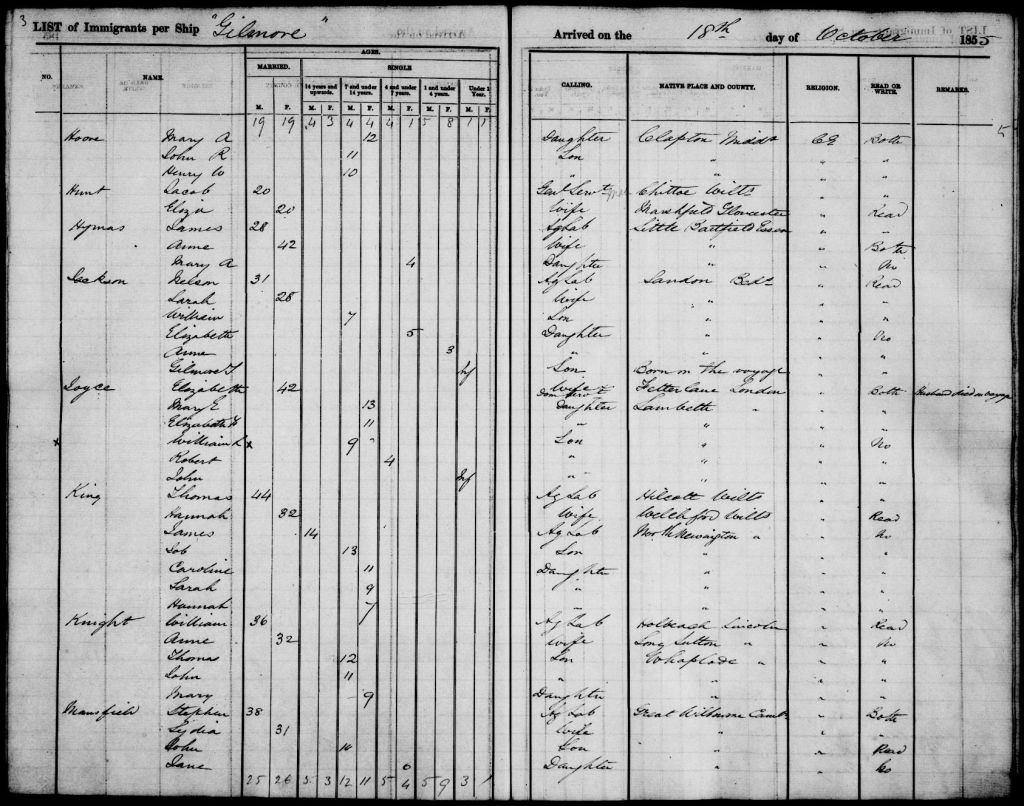 3
LIST of Immigrants per Ship "Gilmore"
Arrived on the 18th day of October 1855
AGES.
MARRIED. SINGLE
NO. NAME. 14 years and upwards. 7 and under 14 years. 4 and under 7 years. 1 and under 4 years. Under 1 Year. CALLING. NATIVE PLACE AND COUNTY. RELIGION. READ OR WRITE. REMARKS.
M. F. M. F. M. F. M. F. M. F. M. F.
19 19 4 3 4 4 4 1 5 8 1 1
Mary A 12 Daughter Clapton Middx CE Both
John R 11 Son " " "
Henry W 10 " " " "
Hunt Jacob 20 Genl Servt Chittoe Wilts "
Eliza 20 Wife Marshfield Gloucester " Read
Hymas James 28 Ag Lab Little Essex " "
Anne 42 Wife " " Both
Mary A 4 Daughter " " No
Jackson Nelson 31 Ag Lab Sandon Beds " Read
Sarah 28 Wife " " "
William 7 Son " " "
Elizabeth 5 Daughter " " No
Anne 3 " " " "
Gilmore Inf Son Born on the voyage " "
Joyce Elizabeth 42 Wife Dom Servt Fetter Lane London " Both Husband died on voyage
Mary E 13 Daughter Lambeth " " "
Elizabeth 11 " " " "
x William L x 9 " Son " " No
Robert 4 " " " "
John Inf " " " "
King Thomas 44 Ag Lab Hilcott Wilts " "
Hannah 32 Wife Welchford Wilts " Read
James 14 Ag Lab North Newington " " No
Job 13 Son " " "
Caroline 11 Daughter " " "
Sarah 9 " " " "
Hannah 7 " " " "
Knight William 36 Ag Lab Holbeach Lincoln " Read
Anne 32 Wife Long Sutton " " No
Thomas 12 Son Whaplode " " "
John 11 " " " "
Mary 9 Daughter " " "
Mansfield Stephen 38 Ag Lab Great Camb " Both
Lydia 31 Wife " " "
John Son " " Read
Jane 6 Daughter " " No
25 26 5 3 12 11 5 4 5 9 3 1